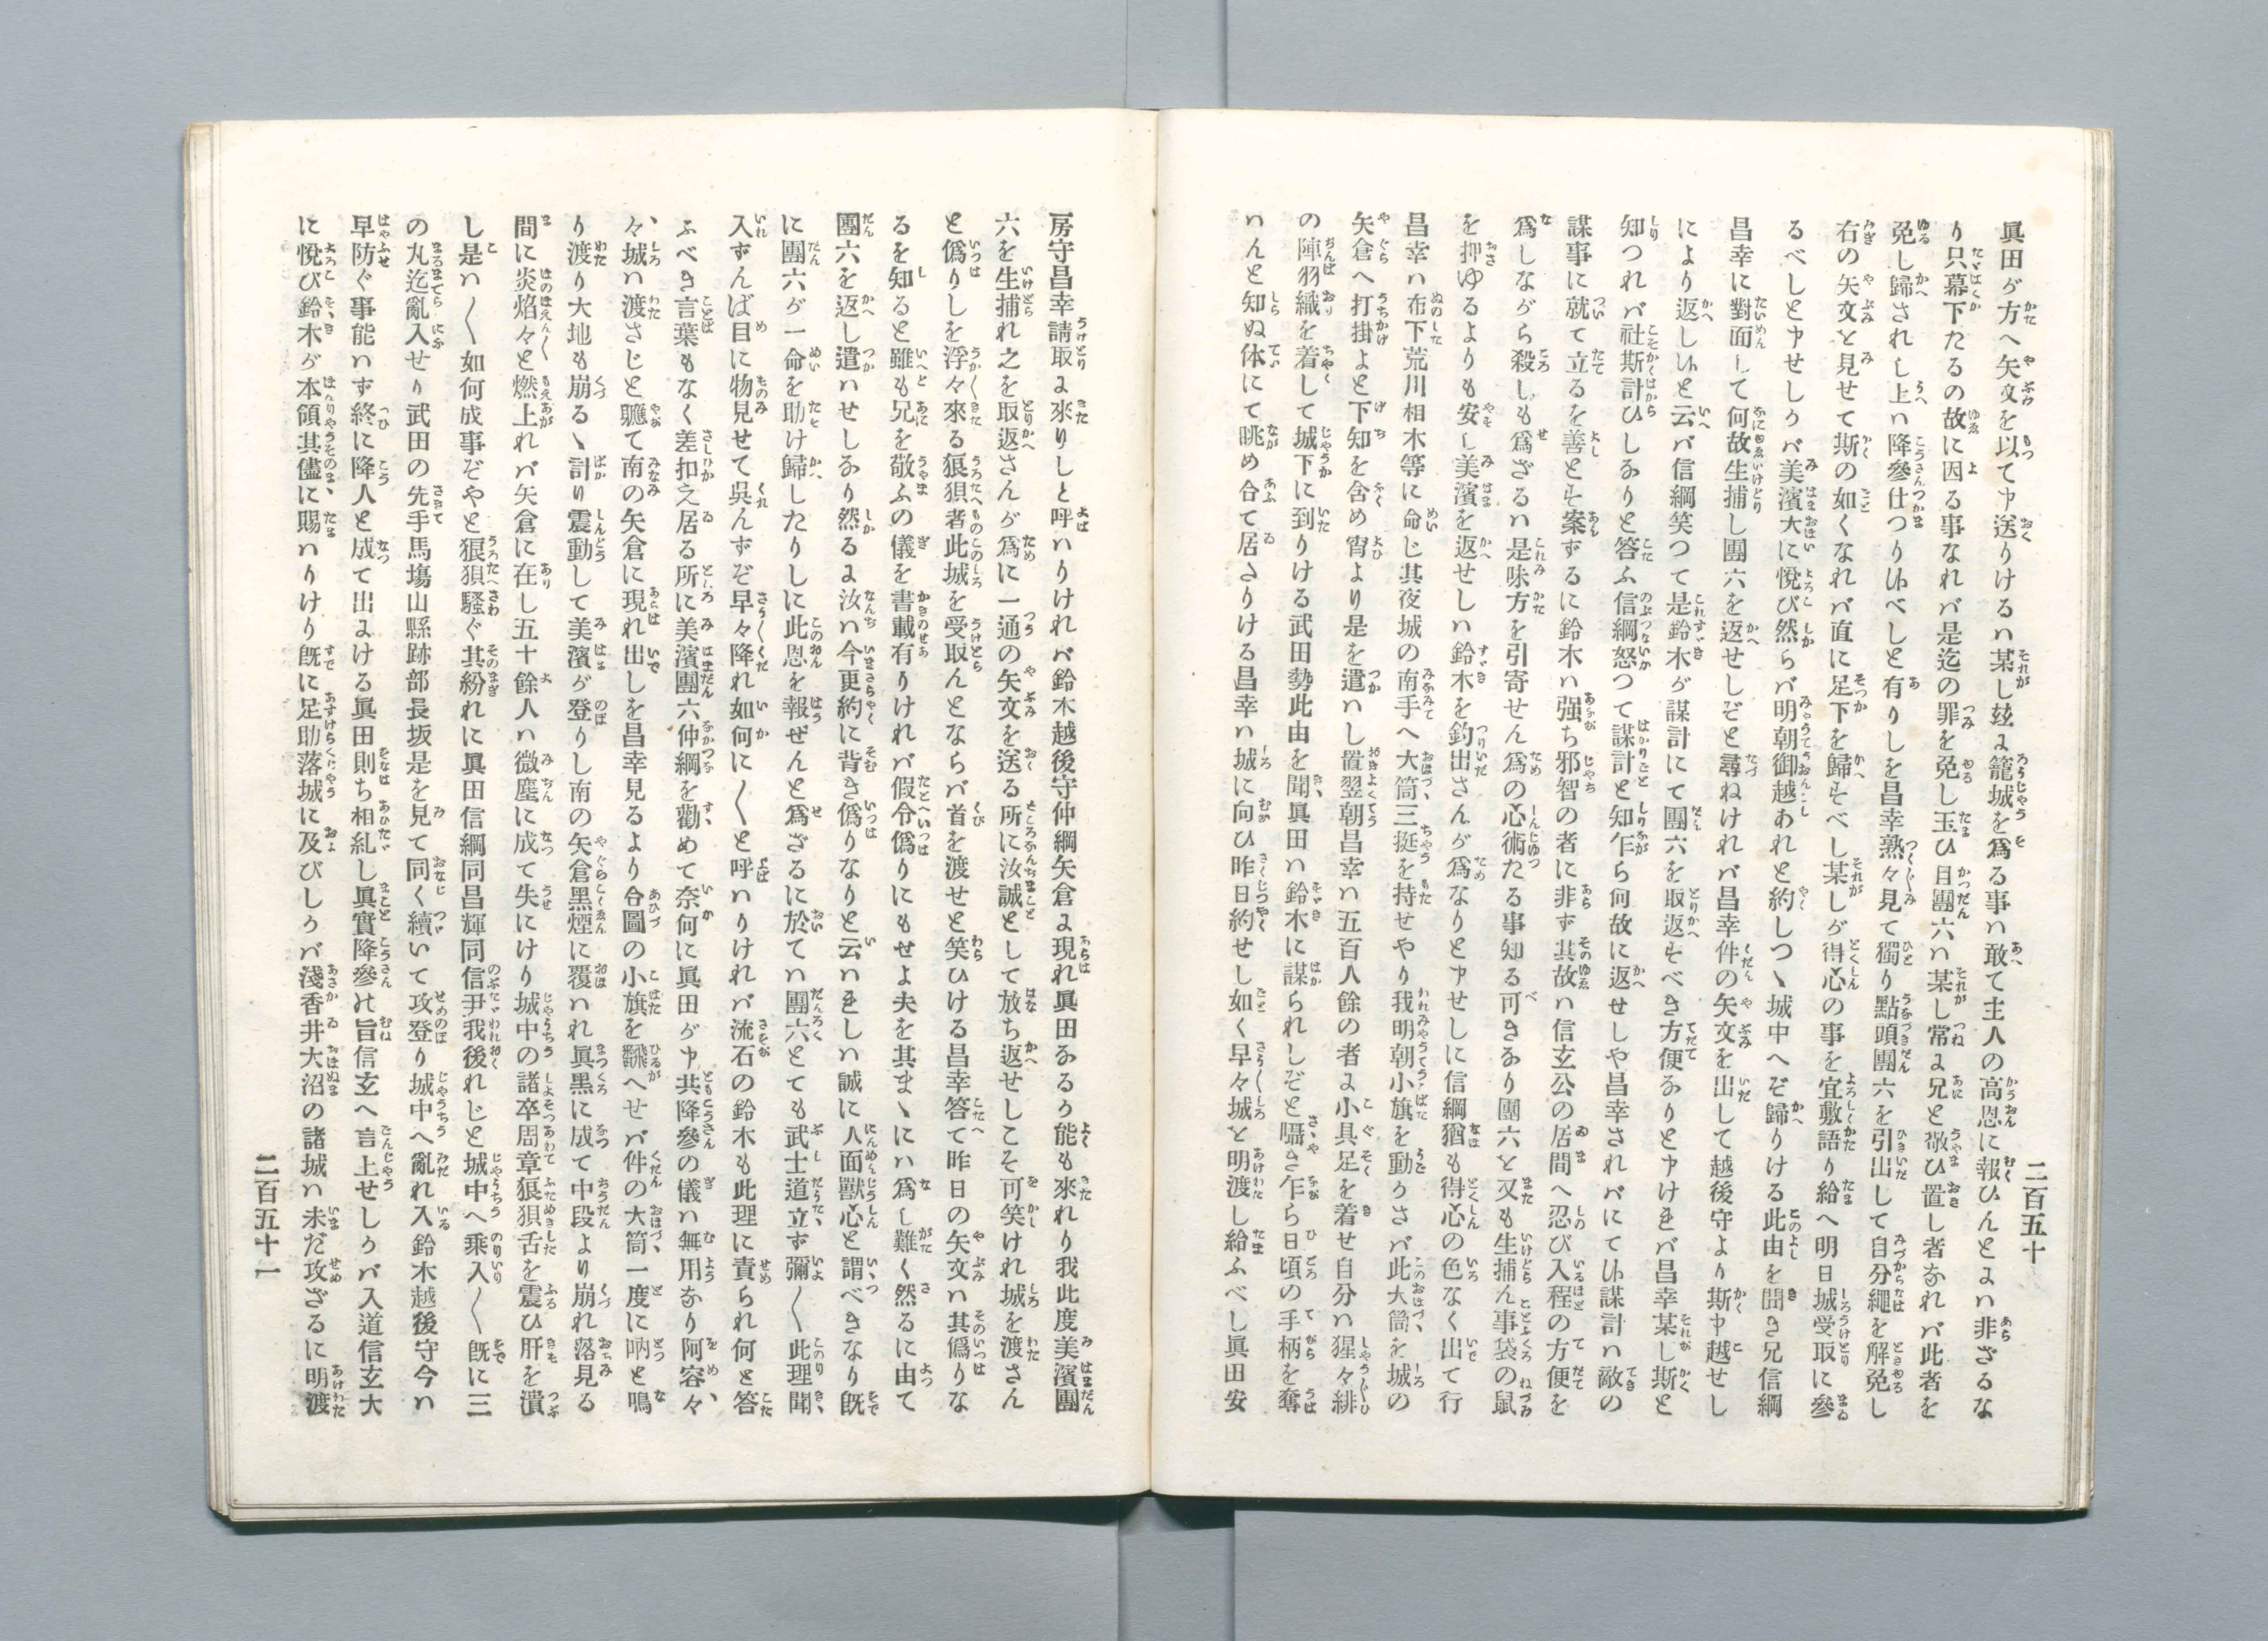 二百五十
眞田が方へ矢文を以て申送りけるハ某し玆に籠城を爲る事ハ敢て主人の高恩に報ひんとにハ非ざるな
り只幕下たるの故に因る事なれバ是迄の罪を免し玉ひ且團六ハ某し常に兄と敬ひ置し者なれバ此者を
免し歸されし上ハ降參仕つり候べしと有りしを昌幸熟々見て獨り點頭團六を引出して自分繩を解免し
右の矢文を見せて斯の如くなれバ直に足下を歸すべし某しが得心の事を宜敷語り給へ明日城受取に參
るべしと申せしかバ美濱大に悅び然らバ明朝御越あれと約しつゝ城中へぞ歸りける此由を聞き兄信綱
昌幸に對面して何故生捕し團六を返せしぞと尋ねけれバ昌幸件の矢文を出して越後守より斯申越せし
により返し候と云へバ信綱笑つて是鈴木が謀計にて團六を取返すべき方便なりと申けれバ昌幸某し斯と
知つれバ社斯計ひしなりと答ふ信綱怒つて謀計と知乍ら何故に返せしや昌幸されバにて候謀計ハ敵の
謀事に就て立るを善とす案ずるに鈴木ハ强ち邪智の者に非ず其故ハ信玄公の居間へ忍び入程の方便を
爲しながら殺しも爲ざるハ是味方を引寄せん爲の心術たる事知る可きなり團六を又も生捕ん事袋の鼠
を押ゆるよりも安し美濱を返せしハ鈴木を釣出さんが爲なりと申せしに信綱猶も得心の色なく出て行
昌幸ハ布下荒川相木等に命じ其夜城の南手へ大筒三挺を持せやり我明朝小旗を動かさバ此大筒を城の
矢倉へ打掛よと下知を含め宵より是を遣ハし置翌朝昌幸ハ五百人餘の者に小具足を着せ自分ハ猩々緋
の陣羽織を着して城下に到りける武田勢此由を聞眞田ハ鈴木に謀られしぞと囁き乍ら日頃の手柄を奪
ハんと知ぬ体にて眺め合て居たりける昌幸ハ城に向ひ昨日約せし如く早々城を明渡し給ふべし眞田安
房守昌幸請取に來りしと呼ハりけれバ鈴木越後守仲綱矢倉に現れ眞田なるか能も來れり我此度美濱團
六を生捕れ之を取返さんが爲に一通の矢文を送る所に汝誠として放ち返せしこそ可笑けれ城を渡さん
と僞りしを浮々來る狼狽者此城を受取んとならバ首を渡せと笑ひける昌幸答て昨日の矢文ハ其僞りな
るを知ると雖も兄を敬ふの儀を書載有りけれバ假令僞りにもせよ夫を其まゝにハ爲し難く然るに由て
團六を返し遣ハせしなり然るに汝ハ今更約に背き僞りなりと云ハれしハ誠に人面獸心と謂べきなり旣
に團六が一命を助け歸したりしに此恩を報ぜんと爲ざるに於てハ團六とても武士道立ず彌〱此理聞
入ずんば目に物見せて吳んずぞ早々降れ如何に〱と呼ハりけれバ流石の鈴木も此理に責られ何と答
ふべき言葉もなく差扣え居る所に美濱團六仲綱を勸めて奈何に眞田が申共降參の儀ハ無用なり阿容々
々城ハ渡さじと軈て南の矢倉に現れ出しを昌幸見るより合圖の小旗を飜へせバ件の大筒一度に吶と鳴
り渡り大地も崩るゝ計り震動して美濱が登りし南の矢倉黑煙に覆ハれ眞黑に成て中段より崩れ落見る
間に炎焰々と燃上れバ矢倉に在し五十餘人ハ微塵に成て失にけり城中の諸卒周章狼狽舌を震ひ肝を潰
し是ハ〱如何成事ぞやと狼狽騷ぐ其紛れに眞田信綱同昌輝同信尹我後れじと城中へ乘入〱旣に三
の丸迄亂入せり武田の先手馬塲山縣跡部長坂是を見て同く續いて攻登り城中へ亂れ入鈴木越後守今ハ
早防ぐ事能ハず終に降人と成て出にける眞田則ち相糺し眞實降參の旨信玄へ言上せしかバ入道信玄大
に悅び鈴木が本領其儘に賜ハりけり旣に足助落城に及びしかバ淺香井大沼の諸城ハ未だ攻ざるに明渡
二百五十一